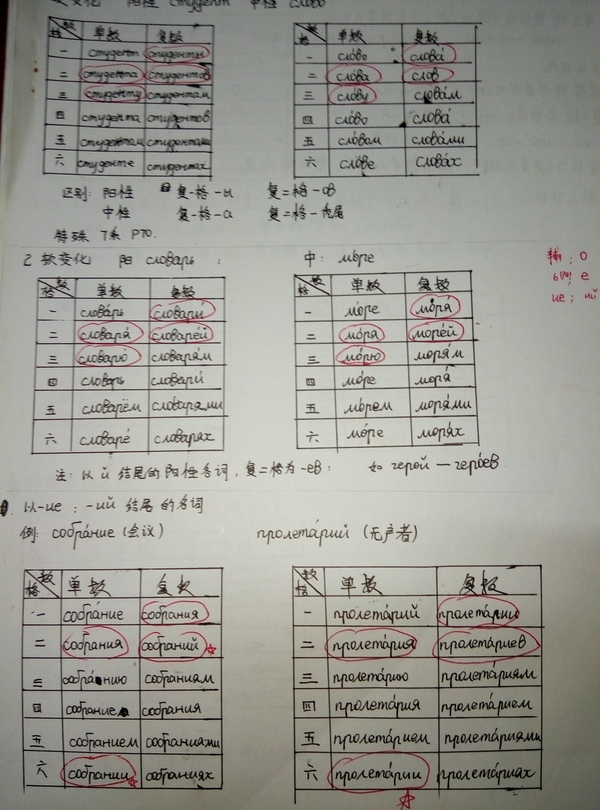 变化 阳性 студент 中性 слово
数 格 单数 复数
一 студент студенты
二 студента студентов
三 студенту студентам
四 студента студентов
五 студентам студентами
六 студенте студентах
数 格 单数 复数
一 сло́во слова́
二 сло́ва слов
三 сло́ву слова́м
四 сло́во слова́
五 сло́вам слова́ми
六 сло́ве слова́х
区别: 阳性 复一格-ы 复二格-ов
中性 复一格-а 复二格-秃尾
特殊 7条 P70.
2 软变化 阳 словарь : 中: мо́ре
数 格 单数 复数
一 слова́рь словари́
二 словаря́ словаре́й
三 словарю́ словаря́м
四 словарь словари́
五 словарём словаря́ми
六 словаре́ словарях
数 格 单数 复数
一 мо́ре моря́
二 мо́ря море́й
三 мо́рю моря́м
四 мо́ре моря́
五 мо́рем моря́ми
六 мо́ре моря́х
辅; о
е
ие; ий
注: 以 й 结尾的阳性名词, 复二格为 -ев: 如 герой — геро́ев
以-ие; -ий 结尾的名词
例: собра́ние (会议) пролета́рий (无产者)
数 格 单数 复数
一 собра́ние собрания
二 собрания собраний
三 собра́нию собраниям
四 собрание собрания
五 собранием собраниями
六 собрании собраниях
数 格 单数 复数
一 пролета́рий пролета́рии
二 пролета́рия пролета́риев
三 пролета́рию пролета́риям
四 пролета́рия пролета́рием
五 пролета́рием пролета́риями
六 пролета́рии пролета́риях